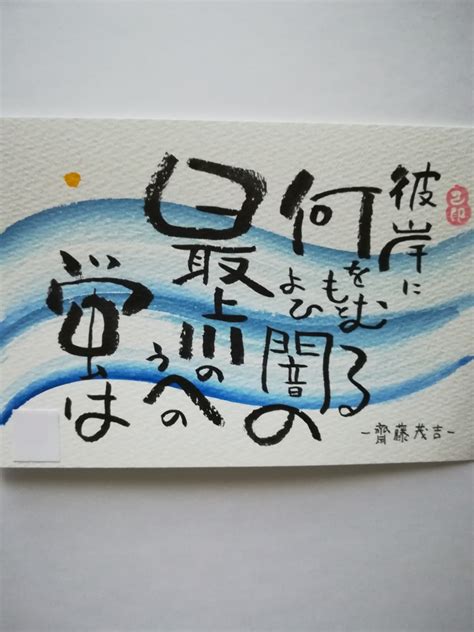 彼岸に
何をもとむる
よひ闇の
最上川の
うへの
蛍は
-齋藤茂吉-